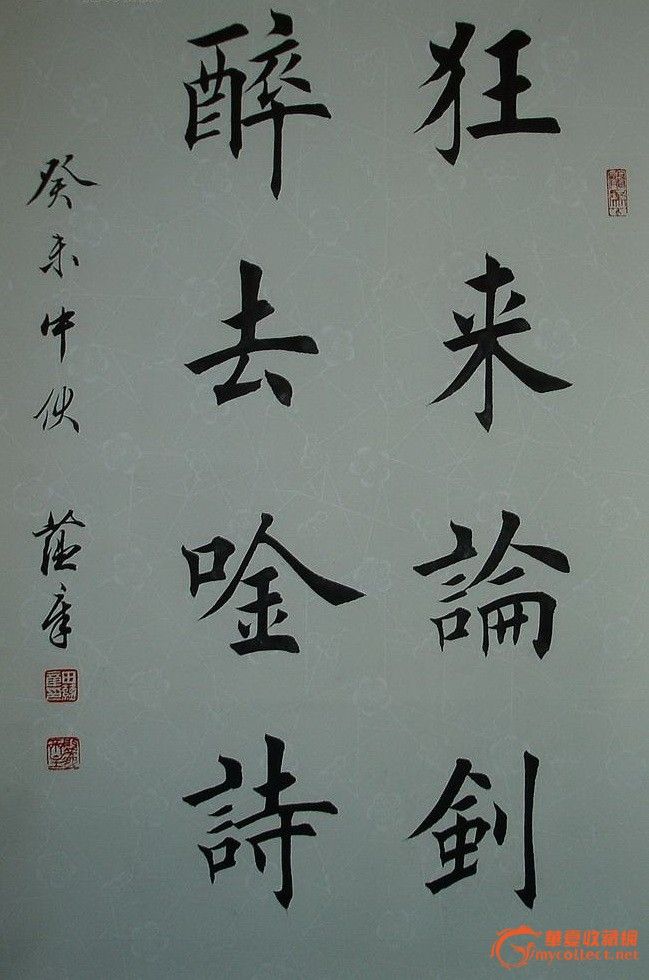 狂来論劍
醉去唫詩
癸未中伏 蕴章
華夏收藏網
mycollect.net